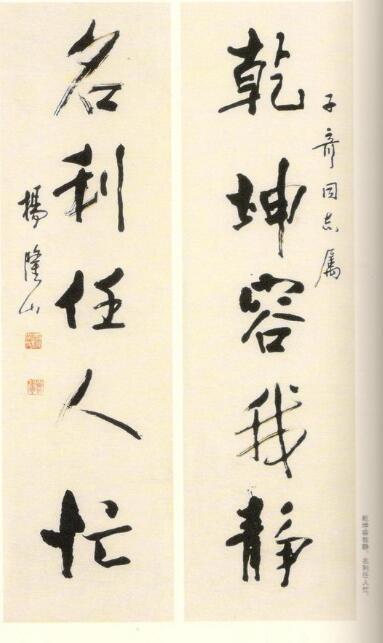 子齐同志属
乾坤容我静
名利任人忙
杨隆山
乾坤容我静，名利任人忙。